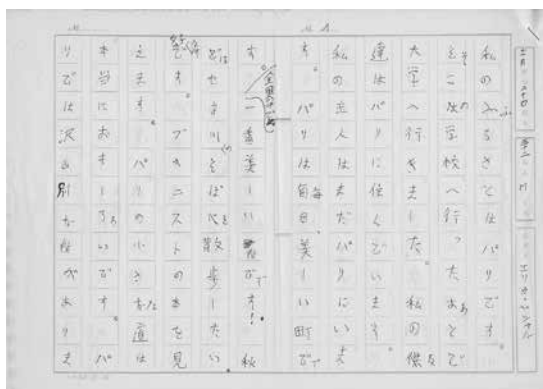 私のふるさとはパリです。
そこの学校へ行ったあとで
大学へ行きました。私の
達はパリに住んでいます
私の主人はまだパリにいま
す。パリは毎日美しい町で
す。一番美しい です!。
川 そば を散歩したい
です。ブキニストの本を見
えます。パリの小さな道は
本当におもしろいです。パ
リでは沢山別な がありま